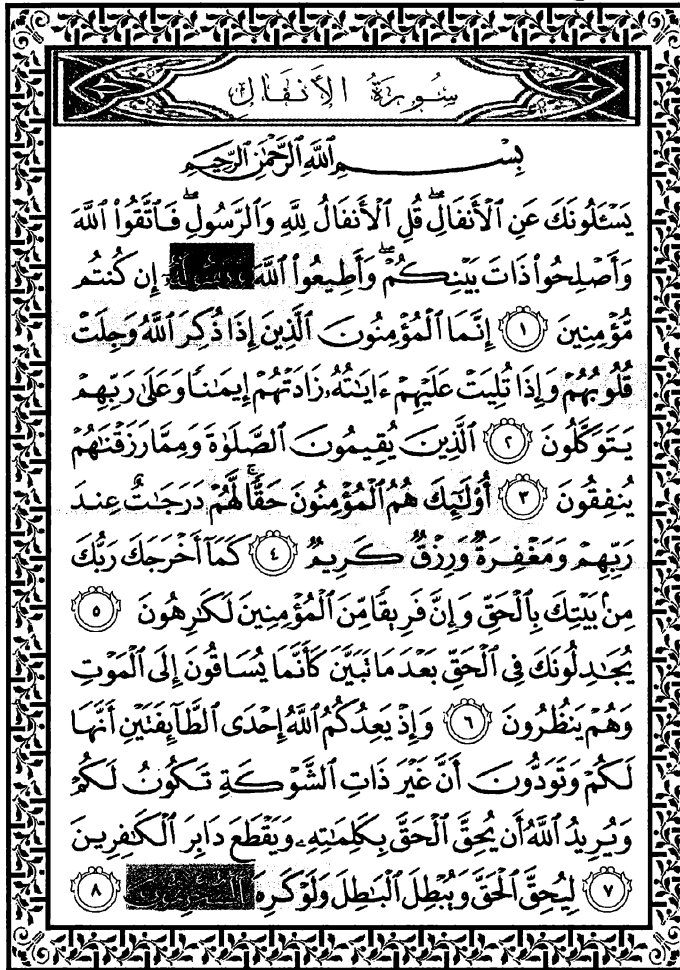 سُورَةُ الأَنفَالِ
بِسْمِ ٱللَّهِ ٱلرَّحْمَٰنِ ٱلرَّحِيمِ
يَسْـَٔلُونَكَ عَنِ ٱلْأَنفَالِ ۖ قُلِ ٱلْأَنفَالُ لِلَّهِ وَٱلرَّسُولِ ۖ فَٱتَّقُوا۟ ٱللَّهَ
وَأَصْلِحُوا۟ ذَاتَ بَيْنِكُمْ ۖ وَأَطِيعُوا۟ ٱللَّهَ إِن كُنتُم
مُّؤْمِنِينَ ١ إِنَّمَا ٱلْمُؤْمِنُونَ ٱلَّذِينَ إِذَا ذُكِرَ ٱللَّهُ وَجِلَتْ
قُلُوبُهُمْ وَإِذَا تُلِيَتْ عَلَيْهِمْ ءَايَٰتُهُۥ زَادَتْهُمْ إِيمَٰنًا وَعَلَىٰ رَبِّهِمْ
يَتَوَكَّلُونَ ٢ ٱلَّذِينَ يُقِيمُونَ ٱلصَّلَوٰةَ وَمِمَّا رَزَقْنَٰهُمْ
يُنفِقُونَ ٣ أُو۟لَٰٓئِكَ هُمُ ٱلْمُؤْمِنُونَ حَقًّا ۚ لَّهُمْ دَرَجَٰتٌ عِندَ
رَبِّهِمْ وَمَغْفِرَةٌ وَرِزْقٌ كَرِيمٌ ٤ كَمَآ أَخْرَجَكَ رَبُّكَ
مِنۢ بَيْتِكَ بِٱلْحَقِّ وَإِنَّ فَرِيقًا مِّنَ ٱلْمُؤْمِنِينَ لَكَٰرِهُونَ ٥
يُجَٰدِلُونَكَ فِى ٱلْحَقِّ بَعْدَ مَا تَبَيَّنَ كَأَنَّمَا يُسَاقُونَ إِلَى ٱلْمَوْتِ
وَهُمْ يَنظُرُونَ ٦ وَإِذْ يَعِدُكُمُ ٱللَّهُ إِحْدَى ٱلطَّآئِفَتَيْنِ أَنَّهَا
لَكُمْ وَتَوَدُّونَ أَنَّ غَيْرَ ذَاتِ ٱلشَّوْكَةِ تَكُونُ لَكُمْ
وَيُرِيدُ ٱللَّهُ أَن يُحِقَّ ٱلْحَقَّ بِكَلِمَٰتِهِۦ وَيَقْطَعَ دَابِرَ ٱلْكَٰفِرِينَ
٧ لِيُحِقَّ ٱلْحَقَّ وَيُبْطِلَ ٱلْبَٰطِلَ وَلَوْ كَرِهَ ٨